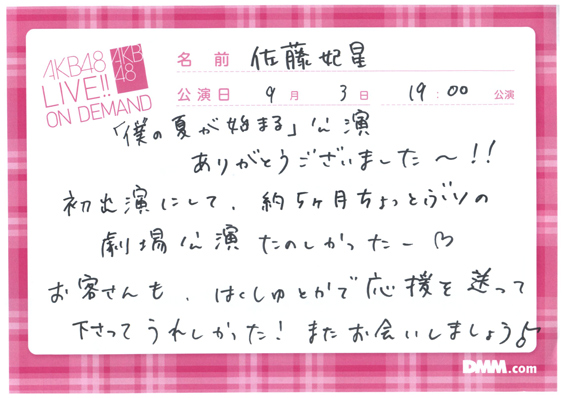 AKB48
LIVE!!
ON DEMAND
AKB
48
名前 佐藤妃星
公演日 9月 3日 19:00 公演
「僕の夏が始まる」公演
ありがとうございました〜!!
初出演にして、約5ヶ月ちょっとぶりの
劇場公演 たのしかったー♡
お客さんも、はくしゅとかで応援を送って
下さってうれしかった! またお会いしましょう♪
DMM.com